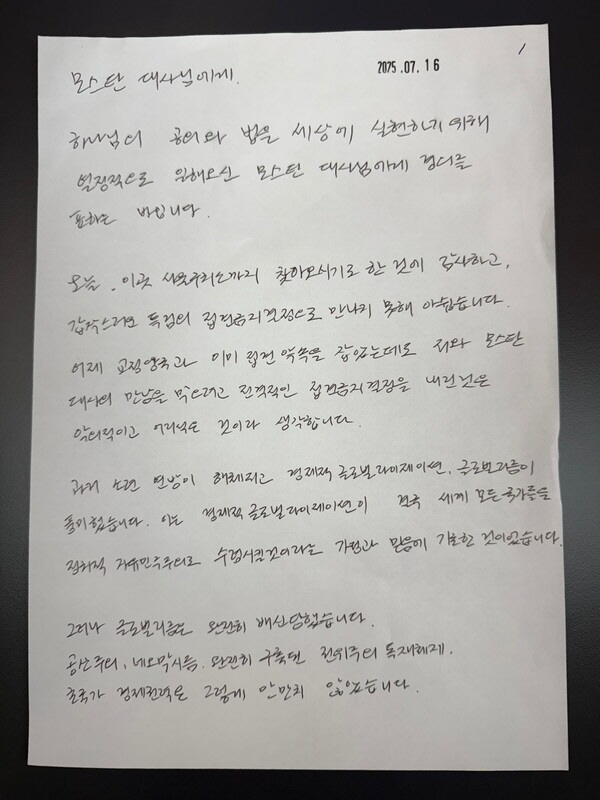 1
2025.07.16
모스탄 대사님에게.
하나님의 공의와 법을 세상에 실현하기 위해
열정적으로 일해오신 모스탄 대사님에게 경의를
표하는 바입니다.
오늘, 이곳 서울구치소까지 찾아오시기로 한 것에 감사하고,
갑작스러운 특검의 접견금지결정으로 만나지 못해 아쉽습니다.
어제 교정당국과 이미 접견 약속을 잡았는데도 저와 모스탄
대사의 만남을 막으려고 전격적인 접견금지결정을 내린것은
악의적이고 어리석은 것이라 생각합니다.
과거 소련 연방이 해체되고 경제적 글로벌라이제이션, 글로벌리즘이
풍미했습니다. 이는 경제적 글로벌라이제이션이 결국 세계 모든 국가들을
정치적 자유민주주의로 수렴시킬것이라는 가정과 믿음에 기초한 것이었습니다.
그러나 글로벌리즘은 완전히 배신당했습니다.
공산주의, 네오막시즘, 완전히 구축된 전위주의 독재체제,
초국가 경제권력은 그렇게 만만치 않았습니다.